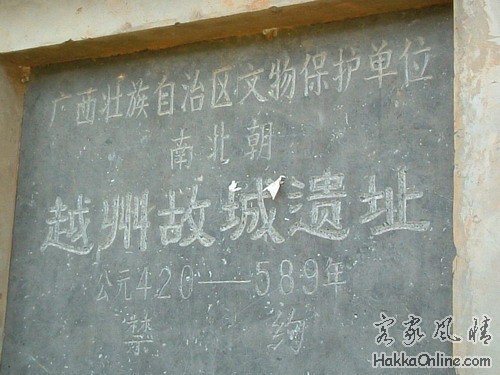 广西壮族自治区文物保护单位
南北朝
越州故城遗址
公元420——589年
禁
客家风情
HakkaOnline.com